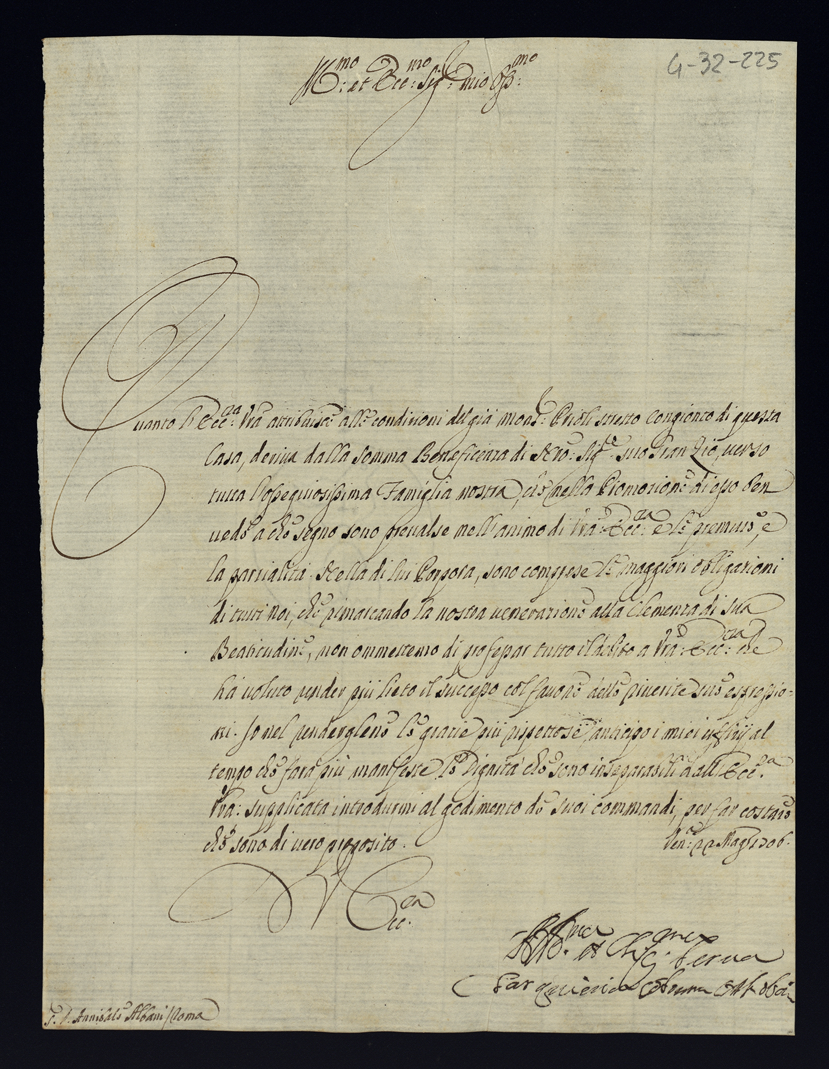 G-32-225
Ill:mo et Ecc:mo Sig:r mio Oss:mo
Quanto l'Ecc:za Vra attribuisce alle condizioni del già Mons:r Prioli stretto congionto di questa
Casa, deriva dalla somma Beneficenza di Nro: Sig:re suo gran Zio, verso
tutta l'ossequiosissima Famiglia nostra, che nella Promozione di esso
veduto a che segno sono prevalse nell'animo di Vra: Ecc:za e le premure, e
la partialità. Nella di lui Porpora, sono comprese le maggiori obligazioni
di tutti noi, che rimarcando la nostra venerazione alla Clemenza di Sua
Beatitudine, non ommettemo di professar tutto il debito a Vra: Ecc:za che
hà voluto render più lieto il successo col favore delle riverite sue espressio-
ni. Io nel rendergliene le grazie più rispettose, anticipo i miei al
tempo che farà più manifeste le Dignità che sono inseparabili dall'Ecc:a
Vra: supplicata introdurmi al godimento de suoi commandi, per far costare
che sono di vero proposito.
Ven:a 22 Mag: 1706.
V Ecc:za
Serva
S. D. Annibale Albani / Roma